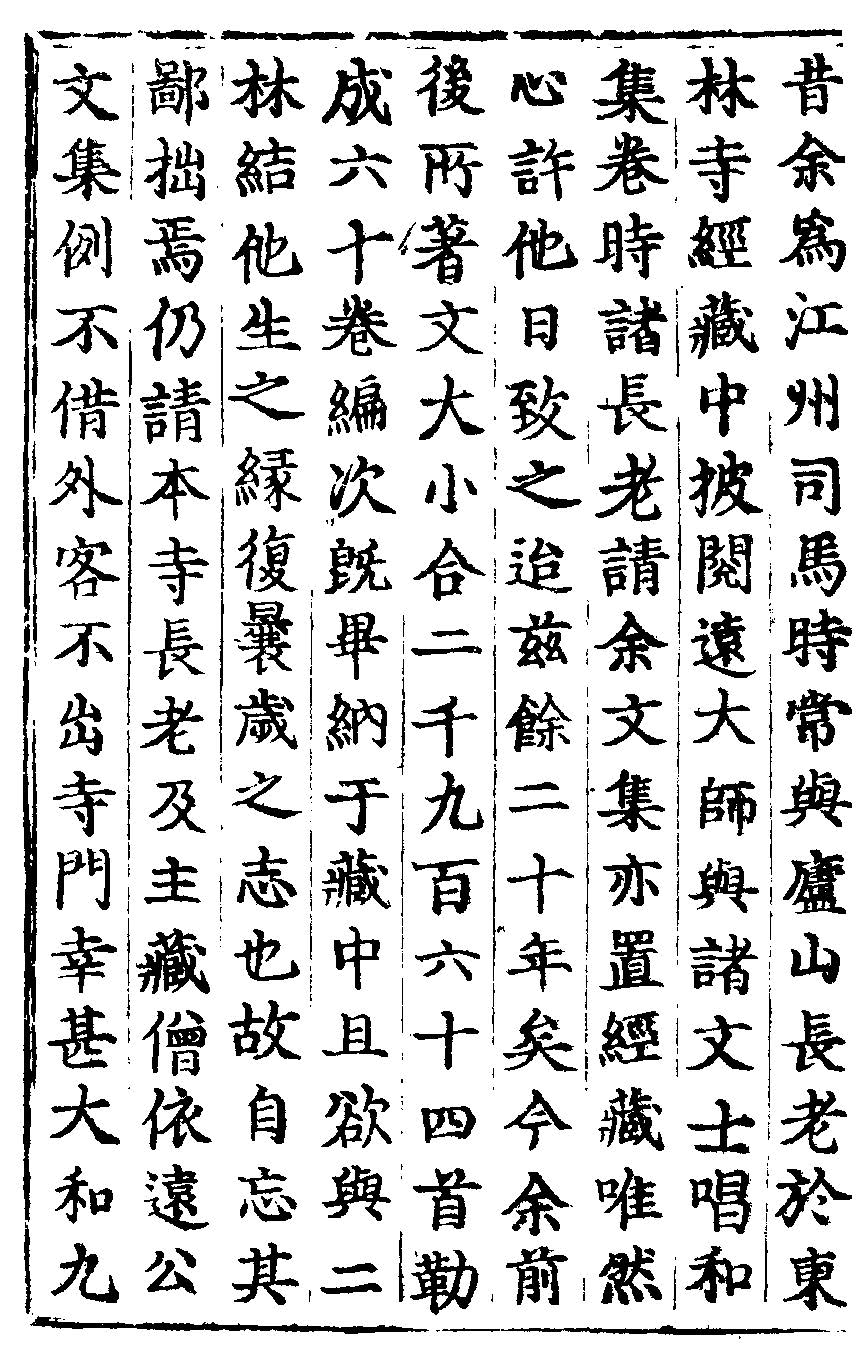 昔余爲江州司馬時常與廬山長老於東
林寺經藏中披閱遠大師與諸文士唱和
集卷時諸長老請余文集亦置經藏唯然
心許他日致之迨兹餘二十年矣今余前
後所著文大小合二千九百六十四首勒
成六十卷編次旣畢納于藏中且欲與二
林結他生之緣復曩歲之志也故自忘其
鄙拙焉仍請本寺長老及主藏僧依遠公
文集例不借外客不出寺門幸甚大和九